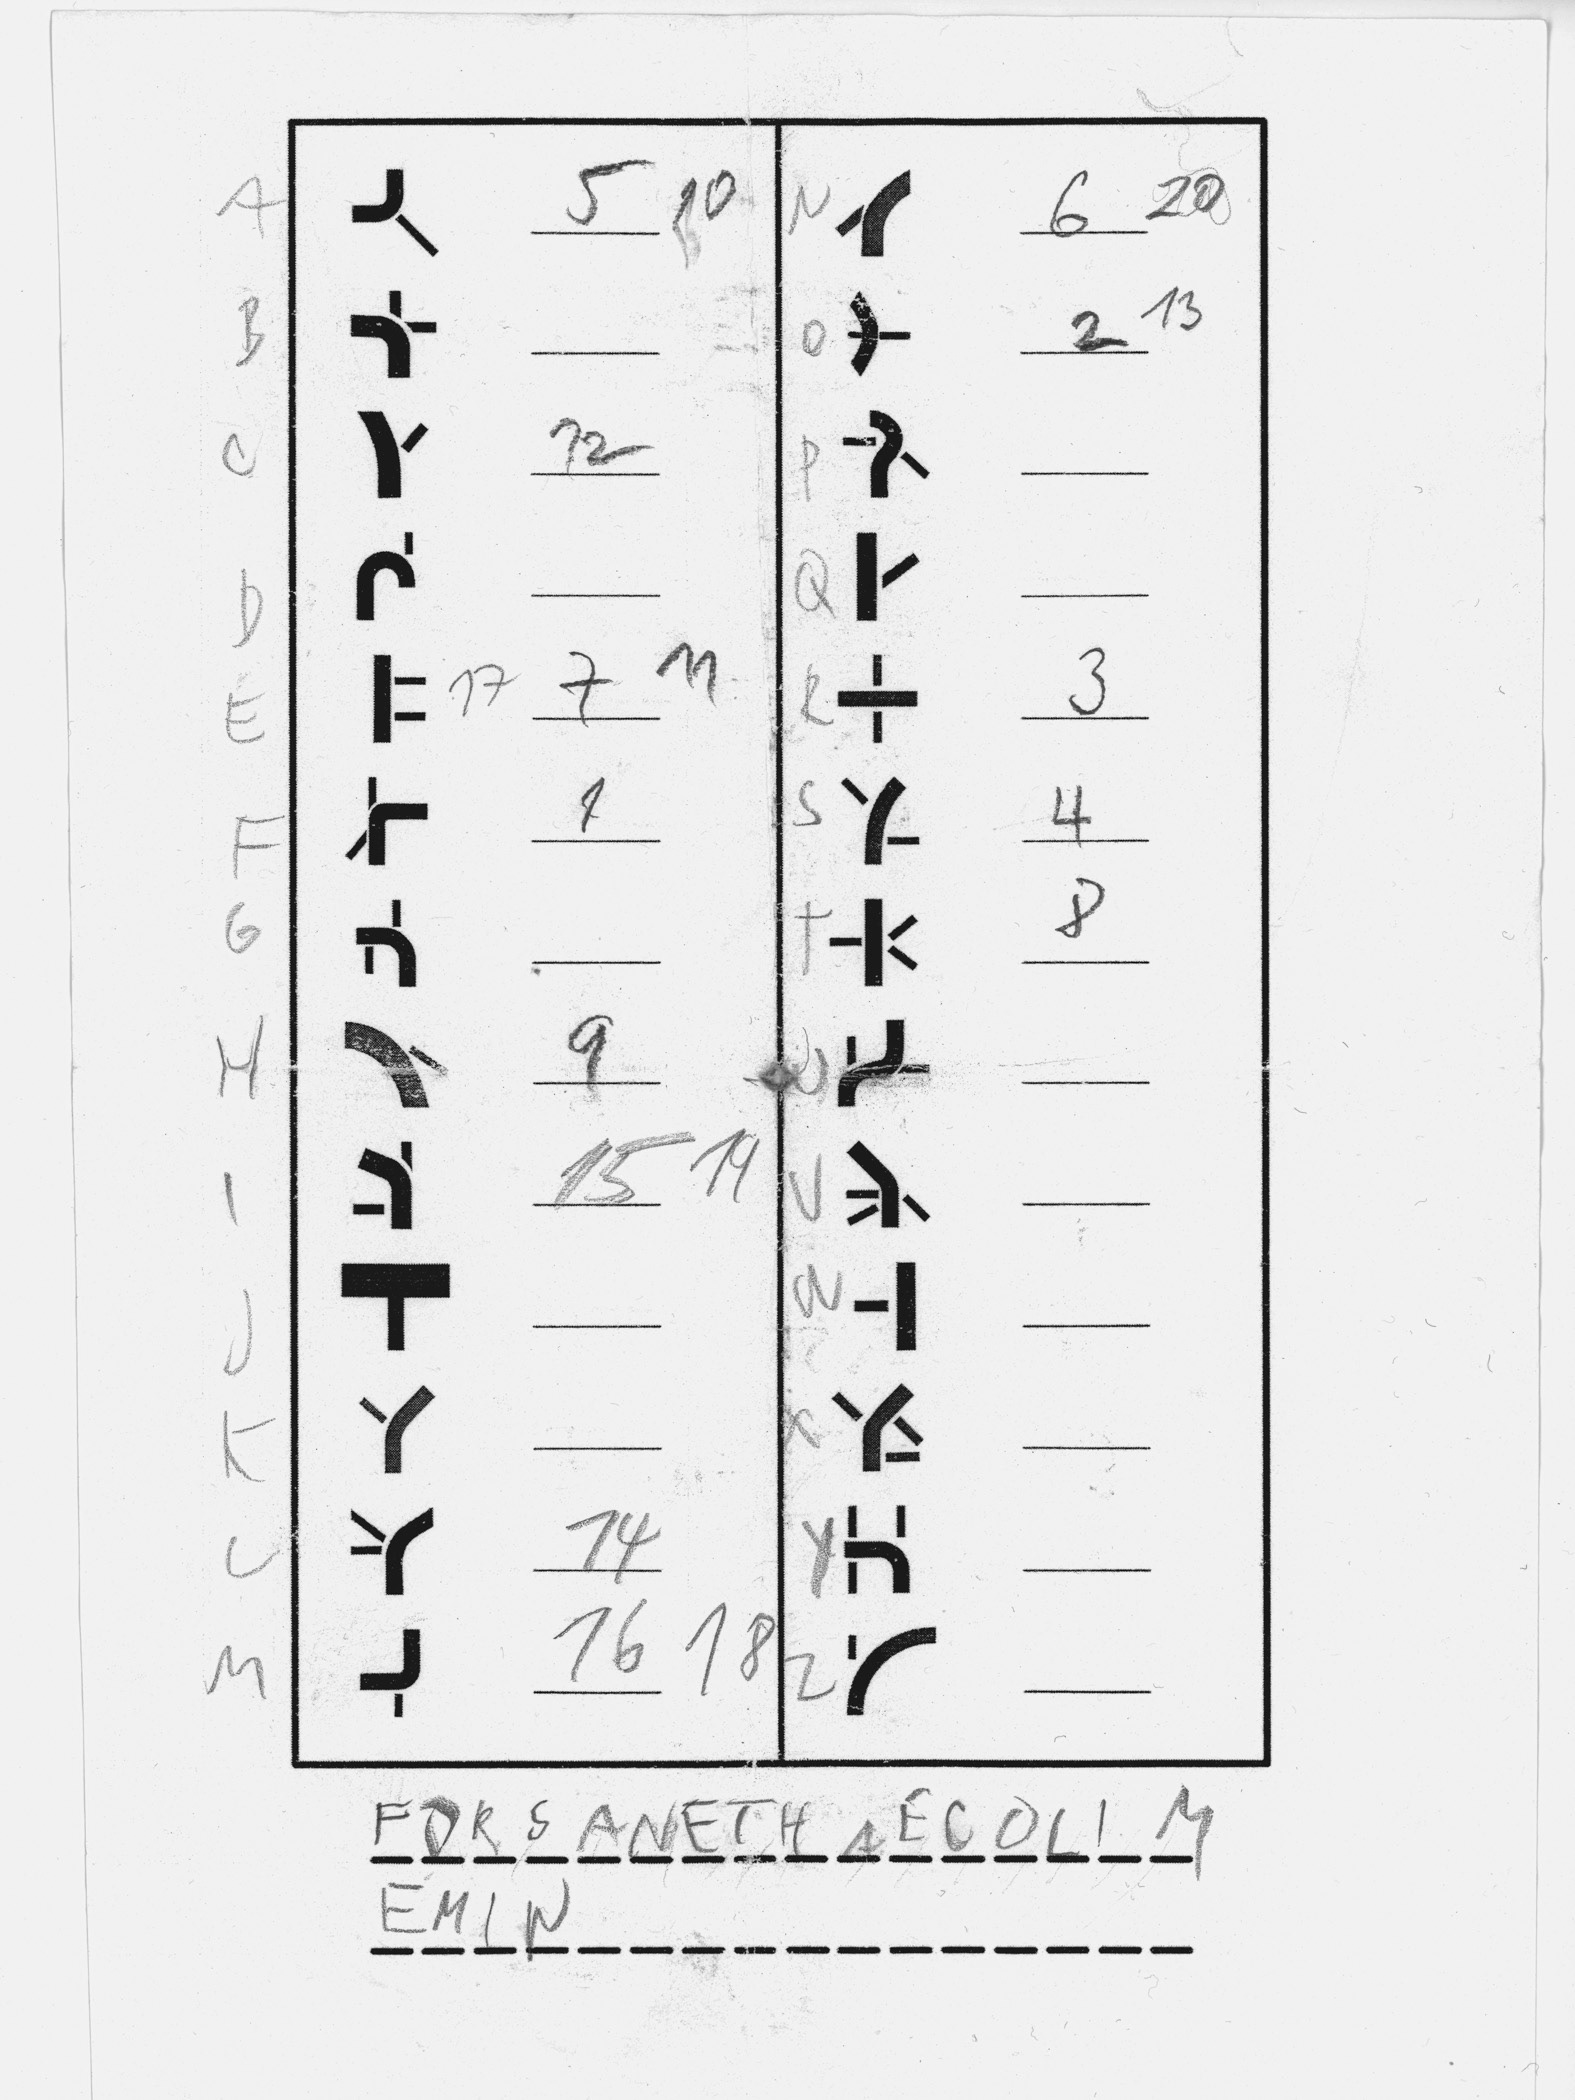 A 5 10
B
C 12
D
E 17 7 11
F 1
G
H 9
I 15 19
J
K
L 14
M 16 18
N 6 20
O 2 13
P
Q
R 3
S 4
T 8
U
V
W
X
Y
Z
FORSANETHAECOLIM
EMIN